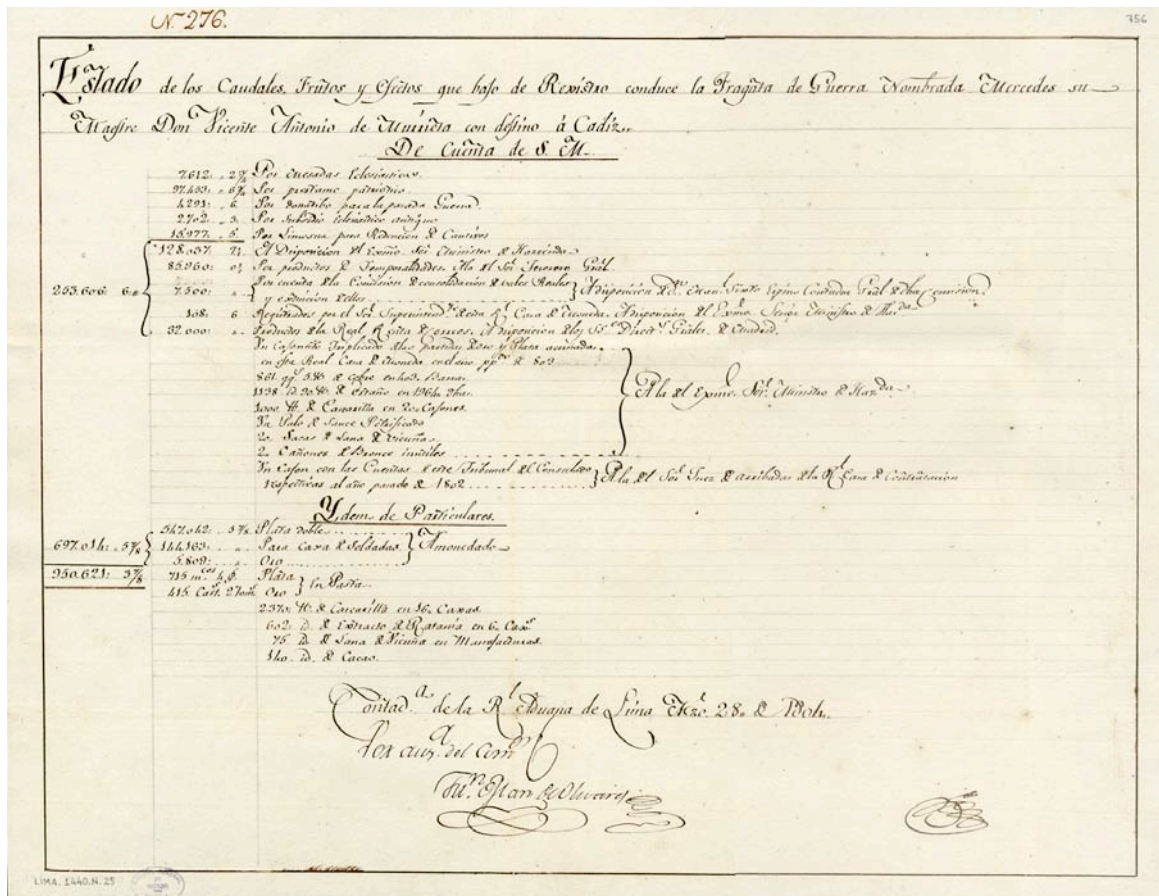 Nº 276.
756
Estado de los Caudales, Frutos y Efectos que bajo de Rexistro conduce la Fragata de Guerra Nombrada Mercedes su
Maestre Don Vicente Antonio de Murrieta con destino á Cadiz.
De Cuenta de S. M.
7.612: Por Mesadas Eclesiasticas.
97.453: Por prestamo patriotico.
4.291: 6 Por donatibo para la pasada Guerra.
2.702: 3 Por Subsidio Eclesiastico antiguo
15.977: 5 Por Limosna para Redencion de Cautivos
128.037: 2½ A Disposicion del Exmo. Sor. Ministro de Hacienda
85.960: Por productos de Temporalidades. del Sor. Tesorero Gral.
Por cuenta de la Comision de consolidacion de vales Reales
253.606: 6 7.500: y extincion de ellos A disposicion de Dn. Man. Sixto Espino Contador Gral de dha comision
108: 6 Registrados por el Sor. Superintendte. de esta Rl. Casa de Moneda. A disposicion del Exmo. Señor Ministro de Hacda.
32.000: Productos de la Real Renta de Correos. A disposicion de los SSes. Directs. Grales. de Madrid.
Un Caxoncito de las partidas de oro y Plata
en esta Real Casa de Moneda en el año ppdo. de 803
861 qq. de Cobre en Barras
1138. id. de estaño en
1000 lb. de Cascarilla en 20. Caxones.
Un Palo de Sauce Petrificado
20. Sacas de Lana de Vicuña.
2. Cañones de Bronce inutiles
A la del Exmo. Sor. Ministro de Hazda.
Un Caxon con las Cuentas de este Tribunal del Consulado
respectivas al año pasado de 1802 A la del Sor. Juez de arribadas de la Rl. Casa de Contratacion
Ydem. de Particulares.
547.042: 5⅞ Plata doble
697.014: 5⅞ 144.163: Para Caxa de Soldadas Amonedado
5.809: Oro
950.621: 3⅞ 715 mcos. Plata
415. Cast. 2 tom. Oro En Pasta
2370. lb. de Cascarilla en 16. Caxas.
602. id. de Extracto de Ratania en 6. Caxs.
75 id. de Lana de Vicuña en Manufacturas.
140. id. de Cacao.
Contada. de la Rl. Aduana de Lima 28. de 1804.
Por aus.a del
de Olivares
LIMA. 1440.N.25